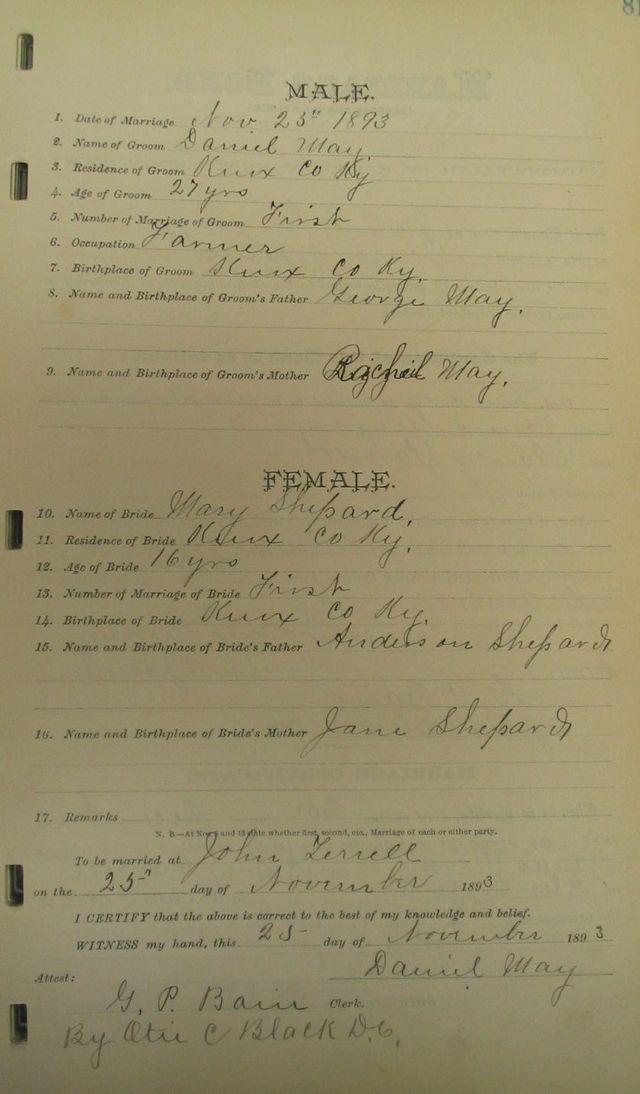 81
MALE.
1. Date of Marriage Nov 25" 1893
2. Name of Groom Daniel May
3. Residence of Groom Knox Co Ky
4. Age of Groom 27 yrs
5. Number of Marriage of Groom First
6. Occupation Farmer
7. Birthplace of Groom Knox Co Ky.
8. Name and Birthplace of Groom's Father George May.
9. Name and Birthplace of Groom's Mother May.
FEMALE.
10. Name of Bride Mary Shepard.
11. Residence of Bride Knox Co Ky.
12. Age of Bride 16 yrs
13. Number of Marriage of Bride First
14. Birthplace of Bride Knox Co Ky.
15. Name and Birthplace of Bride's Father Anderson Shepard
16. Name and Birthplace of Bride's Mother Jane Shepard
17. Remarks
N. B.—At Nos. 5 and 13 state whether first, second, etc., Marriage of each or either party.
To be married at John Terrell
on the 25" day of November 1893
I CERTIFY that the above is correct to the best of my knowledge and belief.
WITNESS my hand, this 25 day of November 1893
Daniel May
Attest:
G. P. Bain Clerk.
By Otis C Black D.C.